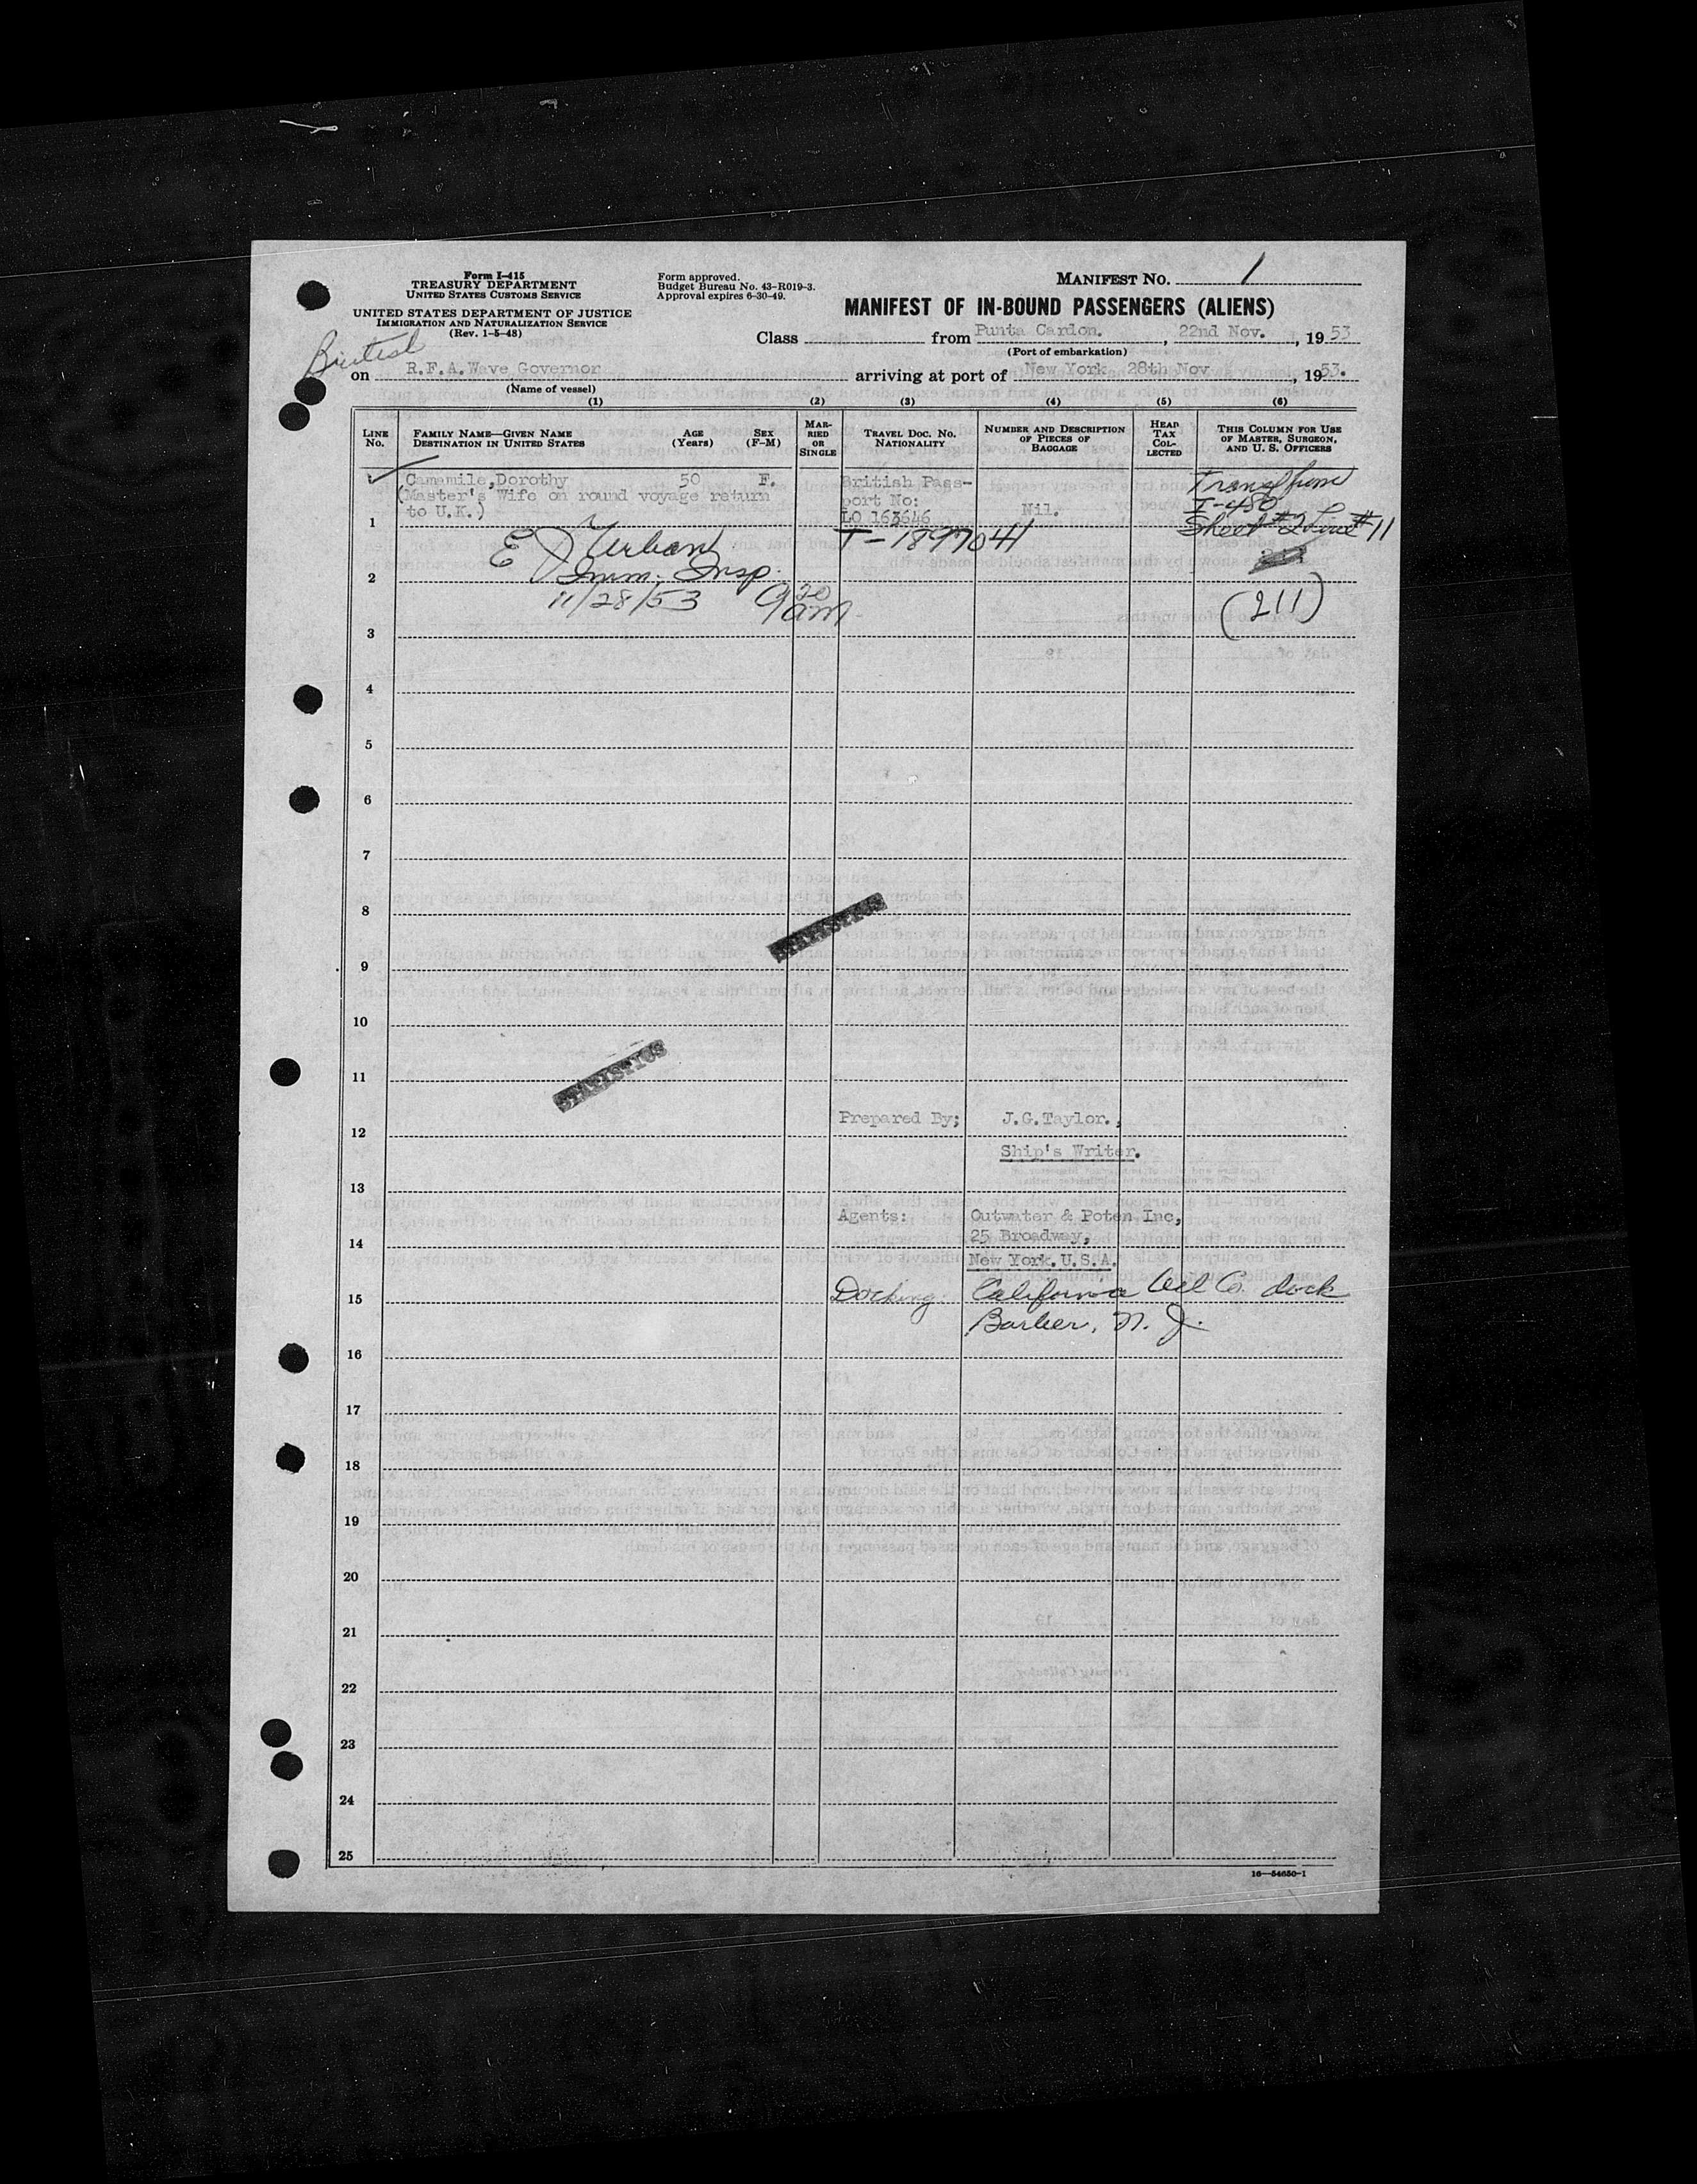 Form I-415
TREASURY DEPARTMENT
UNITED STATES CUSTOMS SERVICE
UNITED STATES DEPARTMENT OF JUSTICE
IMMIGRATION AND NATURALIZATION SERVICE
(Rev. 1-5-48)
Form approved.
Budget Bureau No. 43-R019-3.
Approval expires 6-30-49.
MANIFEST NO. 1
MANIFEST OF IN-BOUND PASSENGERS (ALIENS)
Class from Punta Cardon. , 22nd Nov. , 1953
(Port of embarkation)
British
on R.F.A. Wave Governor arriving at port of New York 28th Nov , 1953.
(Name of vessel)
(1) (2) (3) (4) (5) (6)
LINE No.
FAMILY NAME—GIVEN NAME
DESTINATION IN UNITED STATES
AGE (Years)
SEX (F-M)
MARRIED OR SINGLE
TRAVEL DOC. NO.
NATIONALITY
NUMBER AND DESCRIPTION OF PIECES OF BAGGAGE
HEAD TAX COLLECTED
THIS COLUMN FOR USE OF MASTER, SURGEON, AND U. S. OFFICERS
Camamile, Dorothy 50 F. British Pass-
(Master's Wife on round voyage return port No:
to U.K.) LO 163646 Nil.
I-480
Sheet #2 Line #11
1
E J Urban T-1897041
Imm. Insp.
2
11/28/53 9 20 am (211)
3
4
5
6
7
8
STATISTICS
9
10
STATISTICS
11
Prepared By; J.G.Taylor.,
12
Ship's Writer.
13
Agents: Outwater & Poten Inc,
25 Broadway,
14
New York. U.S.A.
Docking: California Oil Co. dock
15
Barber, N. J.
16
17
18
19
20
21
22
23
24
25
16—54650-1